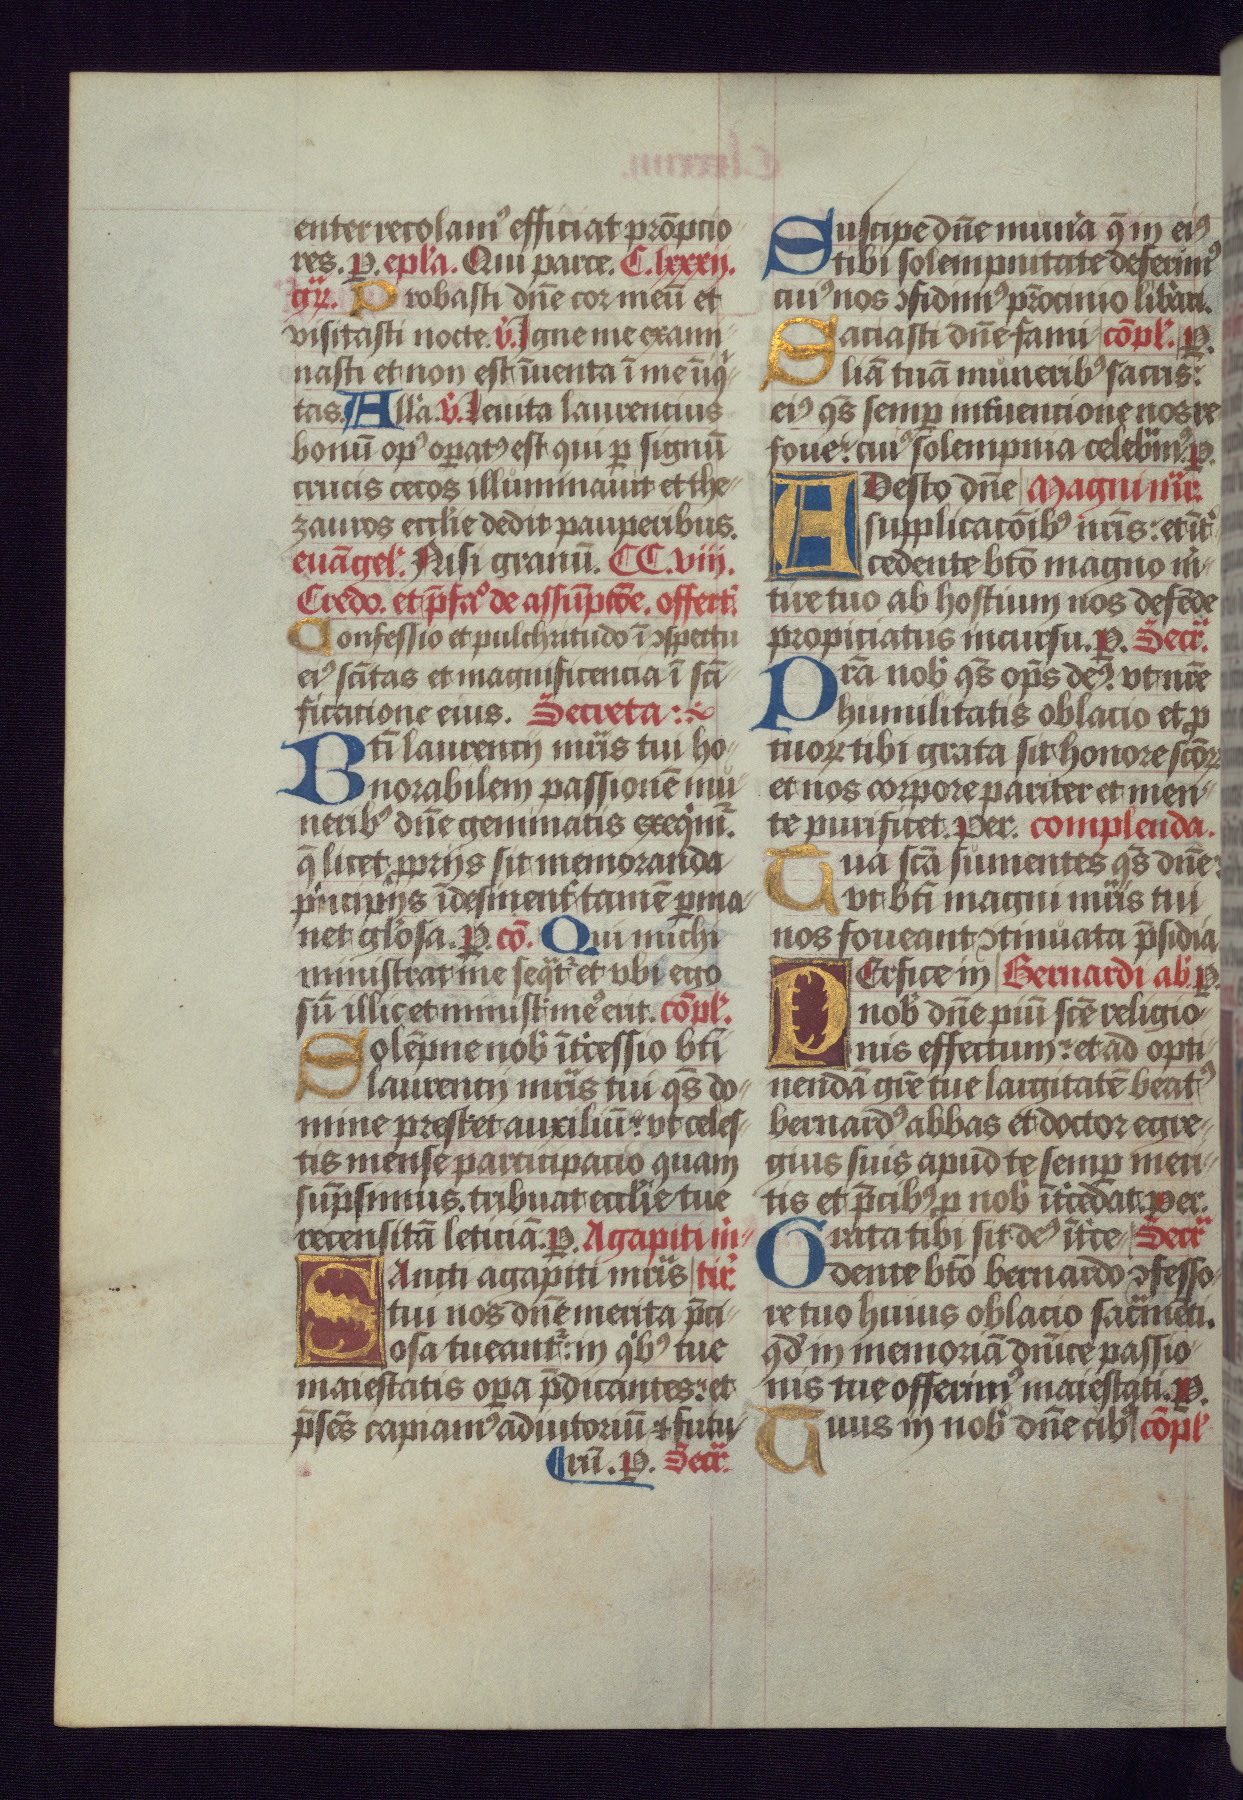 enter recolamꝰ efficiat prōpcio-
res. P. epl'a. Qui parce. C. lxxxij.
gr̄. Probasti dn̄e cor meū et
visitasti nocte. v̄. Igne me exami-
nasti et non est īuenta ī me īiqͥ-
tas. All'a. v̄. Leuita laurencius
bonū opꝰ oꝑatꝰ est qui ꝑ signū
crucis cecos illuminauit et the-
zauros eccl'ie dedit pauperibus.
euāgel'. Nisi granū. CC. viij.
Credo. et p̄fcꝰ de assūpcōe. offert'.
Confessio et pulchritudo ī ꝯspectu
eiꝰ scītas et magnificencia ī scī-
ficatione eius. Secreta:
Btī laurencij mr̄is tui ho-
norabilem passionē mu-
neribꝰ dn̄e geminatis exeqͥmr̄.
q̄ licet ꝓprijs sit memoranda
pͥncipijs īdesinent' tamē ꝑma-
net gl'osa. P. cō. Qui michi
ministrat me seqͣt' et vbi ego
sū illic et minist' meꝰ erit. cōpl'.
Solēpne nob' īt'cessio btī
laurencij mr̄is tui qs̄ do-
mine prestet auxiliū: vt celes-
tis mense participacio quam
sūpsimus. tribuat eccl'ie tue
recensitā leticiā. P. Agapiti m̄-
Sancti agapiti mr̄is tir̄.
tui nos dn̄e merita p̄ci-
osa tueant': in qͥbꝰ tue
maiestatis oꝑa p̄dicantes: et
p̄sēs capiamꝰ adiutoriū & futu-
rū. P. Secr̄.
Suscipe dn̄e munͣa q̄ in eiꝰ
tibi solempnitate deferimꝰ
cuiꝰ nos ꝯfidimꝰ pr̄ocinio lib'ari.
Saciasti dn̄e fami- cōpl'. P.
liā tuā muneribꝰ sacris:
eiꝰ qs̄ semꝑ int'uencione nos re-
foue: cuiꝰ solempnia celebͣmꝰ. P.
Adesto dn̄e Magni mr̄.
supplicacōibꝰ nr̄is: et īt'-
cedente btō magno m̄-
tire tuo ab hostium nos defēde
propiciatus incursu. P. Secr̄.
Prā nob' qs̄ op̄s deꝰ: vt nr̄e
humilitatis oblacio et ꝑ
tuoꝝ tibi grata sit honore scōꝝ
et nos corpore pariter et men-
te purificet. Per. complenda.
Tua scā sumentes qs̄ dn̄e:
vt btī magni mr̄is tui
nos foueant ꝯtinuata p̄sidia
Perfice in Bernardi ab'. P.
nob' dn̄e piū scē religio-
nis effectum: et ad opti-
nendā gr̄e tue largitatē beatꝰ
bernardꝰ abbas et doctor egre-
gius suis apud te semꝑ meri-
tis et p̄cibꝰ ꝑ nob' īt'cedat. Per.
Grata tibi sit deꝰ īt'ce- Secr̄
dente btō bernardo ꝯfesso-
re tuo huius oblacio sacͣmēti.
qd' in memoriā dn̄ice passio-
nis tue offerimꝰ maiestati. P.
Tuus in nob' dn̄e cibꝰ cōpl'